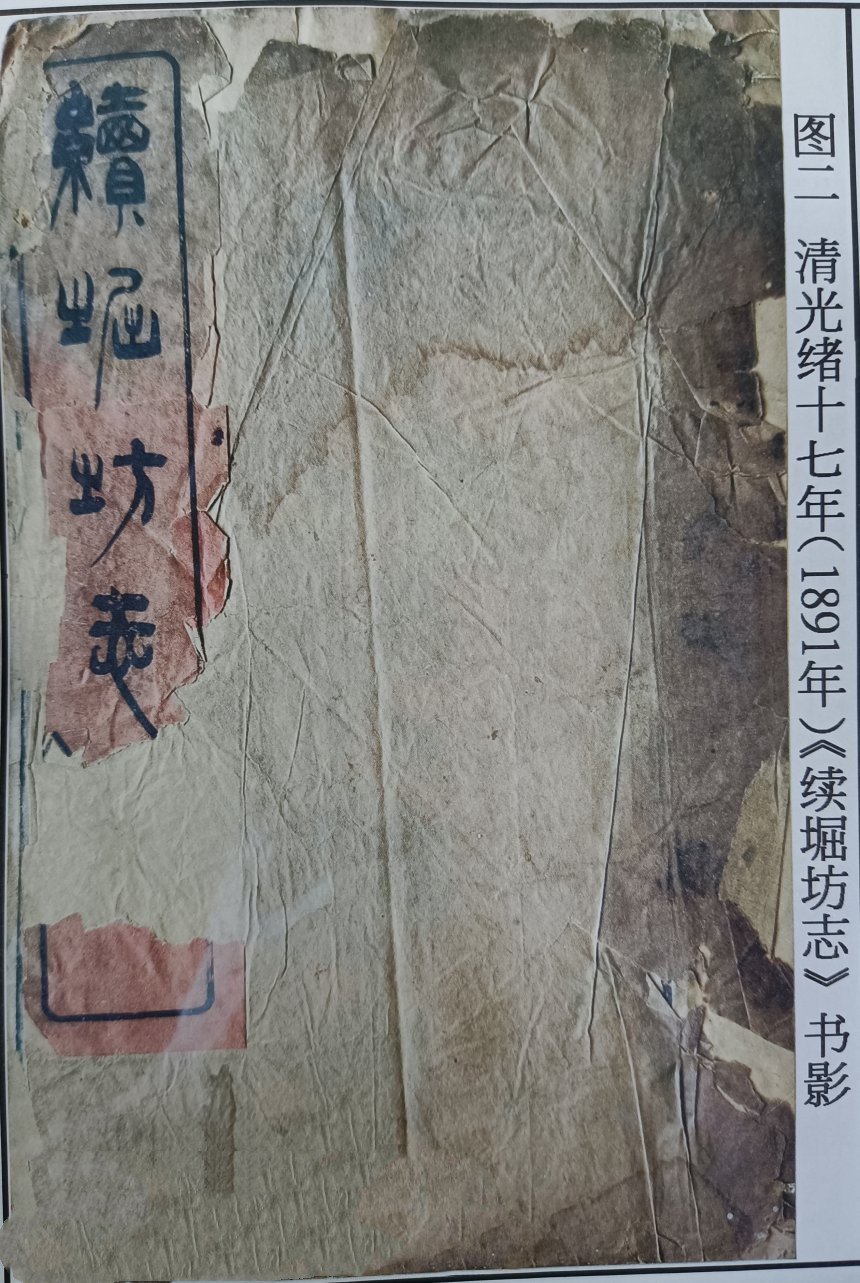 图二 清光绪十七年（1891年）《续堀坊志》书影
續堀坊志